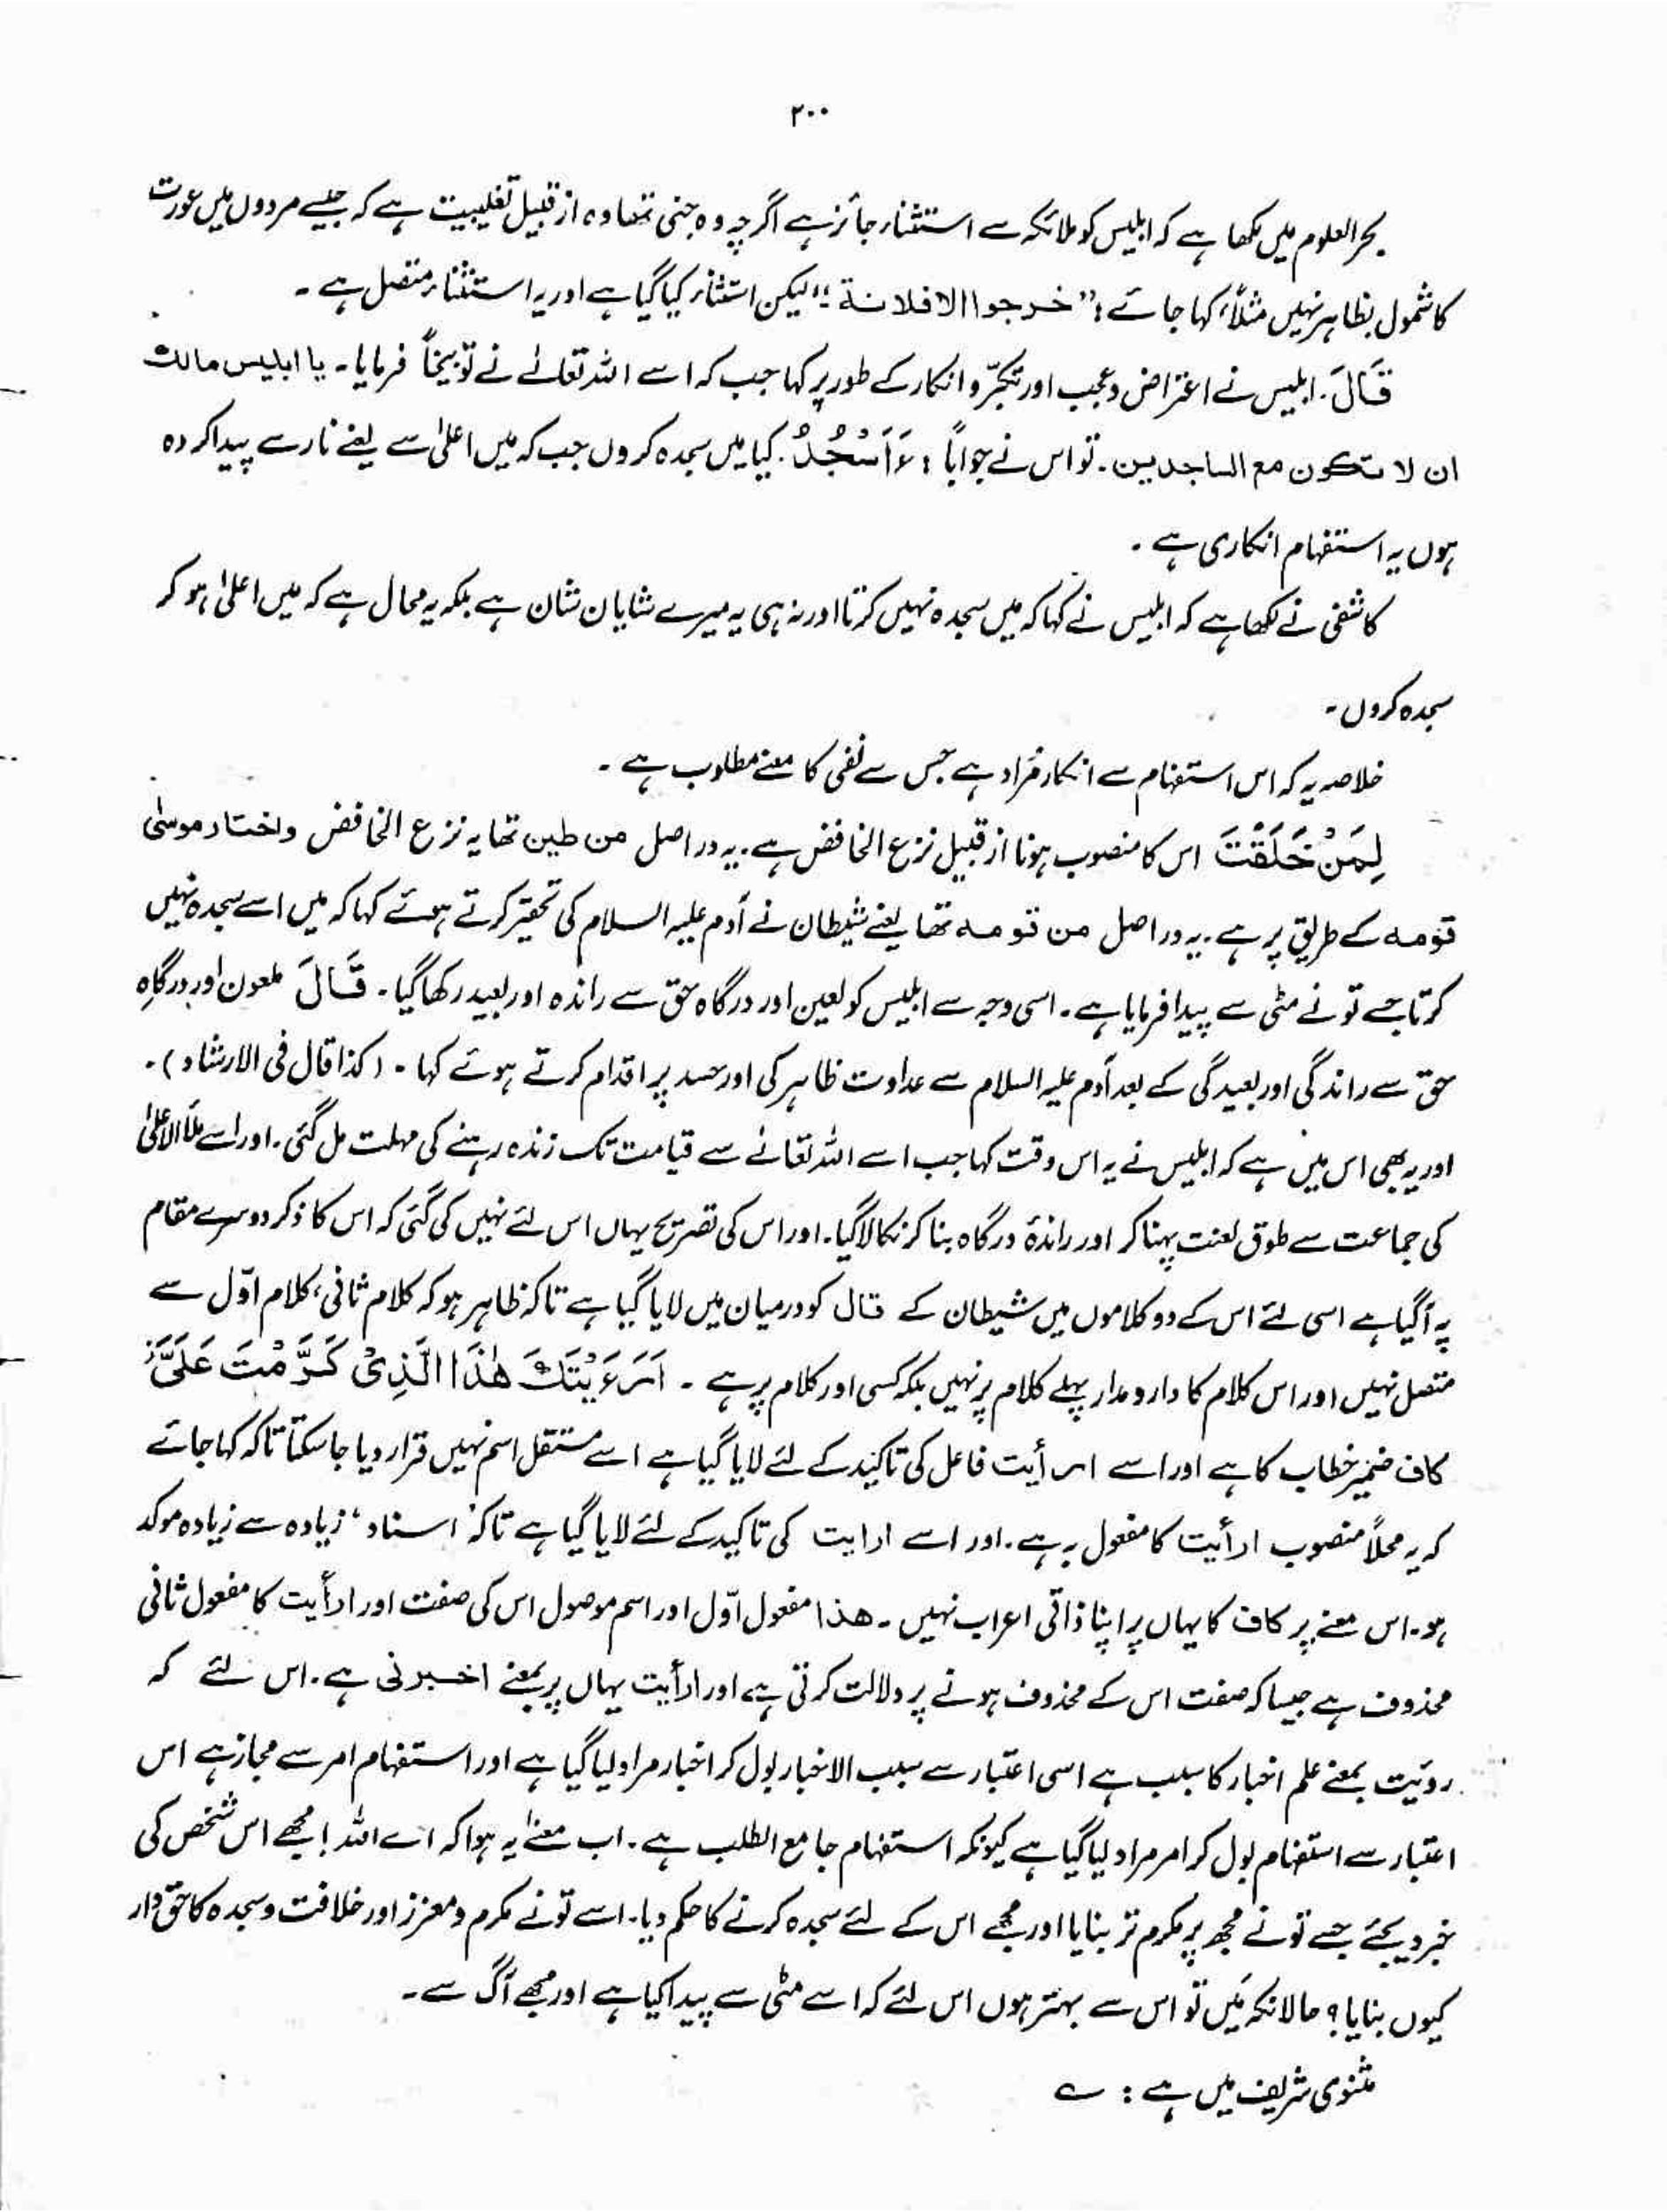 ۲۰۰
بحر العلوم میں لکھا ہے کہ ابلیس کو ملائکہ سے استثناء جائز ہے اگرچہ وہ جنی تھا وہ از قبیل تغلیبیت ہے کہ جیسے مردوں میں عورت
کا شمول بظاہر نہیں مثلاً کہا جائے: "خرجوا الا فلانة" لیکن استثناء کیا گیا ہے اور یہ استثناء متصل ہے ۔
قَالَ. ابلیس نے اعتراض و عجب اور تکبّر و انکار کے طور پر کہا جب کہ اسے اللہ تعالٰے نے توبیخاً فرمایا۔ یا ابلیس مالك
ان لا تکون مع الساجدین۔ تو اس نے جواباً : ءَاَسْجُدُ. کیا میں سجدہ کروں جب کہ میں اعلیٰ سے یعنے نار سے پیدا کردہ
ہوں یہ استفہام انکاری ہے ۔
کاشفی نے لکھا ہے کہ ابلیس نے کہا کہ میں سجدہ نہیں کرتا اور نہ ہی یہ میرے شایان شان ہے بلکہ یہ محال ہے کہ میں اعلیٰ ہو کر
سجدہ کروں۔
خلاصہ یہ کہ اس استفہام سے انکار مُراد ہے جس سے نفی کا معنے مطلوب ہے ۔
لِمَنْ خَلَقْتَ اس کا منصوب ہونا از قبیل نزع الخافض ہے۔ یہ دراصل من طین تھا یہ نزع الخافض واختار موسیٰ
قومہ کے طریق پر ہے۔ یہ دراصل من قومہ تھا یعنے شیطان نے آدم علیہ السلام کی تحقیر کرتے ہوئے کہا کہ میں اسے سجدہ نہیں
کرتا جسے تو نے مٹی سے پیدا فرمایا ہے۔ اسی وجہ سے ابلیس کو لعین اور درگاہ حق سے راندہ اور بعید رکھا گیا۔ قَالَ ملعون اور درگاہِ
حق سے راندگی اور بعیدگی کے بعد آدم علیہ السلام سے عداوت ظاہر کی اور حسد پر اقدام کرتے ہوئے کہا ۔ (کذا قال فی الارشاد)۔
اور یہ بھی اس میں ہے کہ ابلیس نے یہ اس وقت کہا جب اسے اللہ تعالٰے سے قیامت تک زندہ رہنے کی مہلت مل گئی۔ اور اسے ملأ الاعلیٰ
کی جماعت سے طوق لعنت پہنا کر اور راندۂ درگاہ بنا کر نکالا گیا۔ اور اس کی تصریح یہاں اس لئے نہیں کی گئی کہ اس کا ذکر دوسرے مقام
پہ آگیا ہے اسی لئے اس کے دو کلاموں میں شیطان کے قال کو درمیان میں لایا گیا ہے تاکہ ظاہر ہو کہ کلام ثانی، کلام اوّل سے
متصل نہیں اور اس کلام کا دارومدار پہلے کلام پر نہیں بلکہ کسی اور کلام پر ہے ۔ اَرَءَيْتَكَ هٰذَا الَّذِىْ كَرَّمْتَ عَلَيَّ
کاف ضمیر خطاب کا ہے اور اسے ارأیت فاعل کی تاکید کے لئے لایا گیا ہے اسے مستقل اسم نہیں قرار دیا جا سکتا تاکہ کہا جائے
کہ یہ محلاً منصوب ارأیت کا مفعول بہ ہے۔ اور اسے ارایت کی تاکید کے لئے لایا گیا ہے تاکہ اسناد، زیادہ سے زیادہ موکد
ہو۔ اس معنے پر کاف کا یہاں پر اپنا ذاتی اعراب نہیں ۔ ھذا مفعول اوّل اور اسم موصول اس کی صفت اور ارأیت کا مفعول ثانی
محذوف ہے جیسا کہ صفت اس کے محذوف ہونے پر دلالت کرتی ہے اور ارأیت یہاں پر بمعنے اخبرنی ہے۔ اس لئے کہ
رویّت بمعنے علم اخبار کا سبب ہے اسی اعتبار سے سبب الاخبار بول کر اخبار مراد لیا گیا ہے اور استفہام امر سے مجاز ہے اس
اعتبار سے استفہام بول کر امر مراد لیا گیا ہے کیونکہ استفہام جامع الطلب ہے۔ اب معنےٰ یہ ہوا کہ اے اللہ! مجھے اس شخص کی
خبر دیجئے جسے تو نے مجھ پر مکرم تر بنایا اور مجھے اس کے لئے سجدہ کرنے کا حکم دیا۔ اسے تو نے مکرم و معزز اور خلافت و سجدہ کا حق دار
کیوں بنایا؟ حالانکہ مَیں تو اس سے بہتر ہوں اس لئے کہ اسے مٹی سے پیدا کیا ہے اور مجھے آگ سے۔
مثنوی شریف میں ہے : ؎